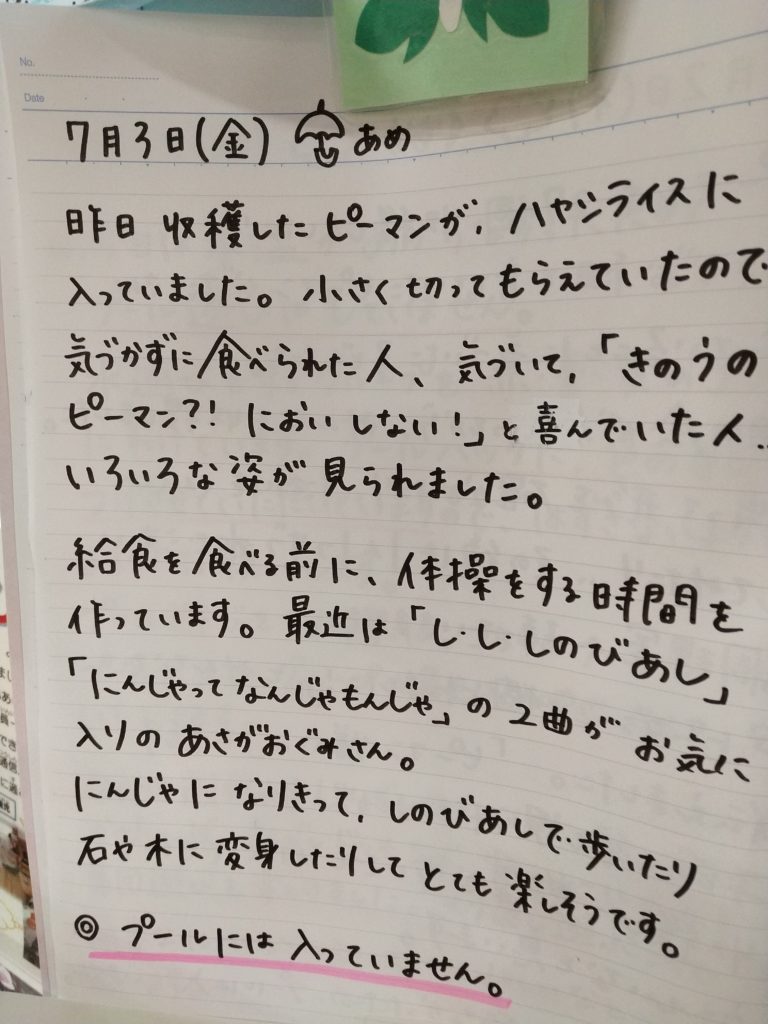 No.
Date
7月3日(金) あめ
昨日 収穫したピーマンが、ハヤシライスに
入っていました。小さく切ってもらえていたので
気づかずに食べられた人、気づいて、「きのうの
ピーマン?! におい しない!」と喜んでいた人..
いろいろな姿が見られました。
給食を食べる前に、体操をする時間を
作っています。最近は「し・し・しのびあし」
「にんじゃってなんじゃもんじゃ」の2曲が お気に
入りの あさがおぐみさん。
にんじゃに なりきって、しのびあしで歩いたり
石や木に変身したりして とても楽しそうです。
◎ プールには 入っていません。